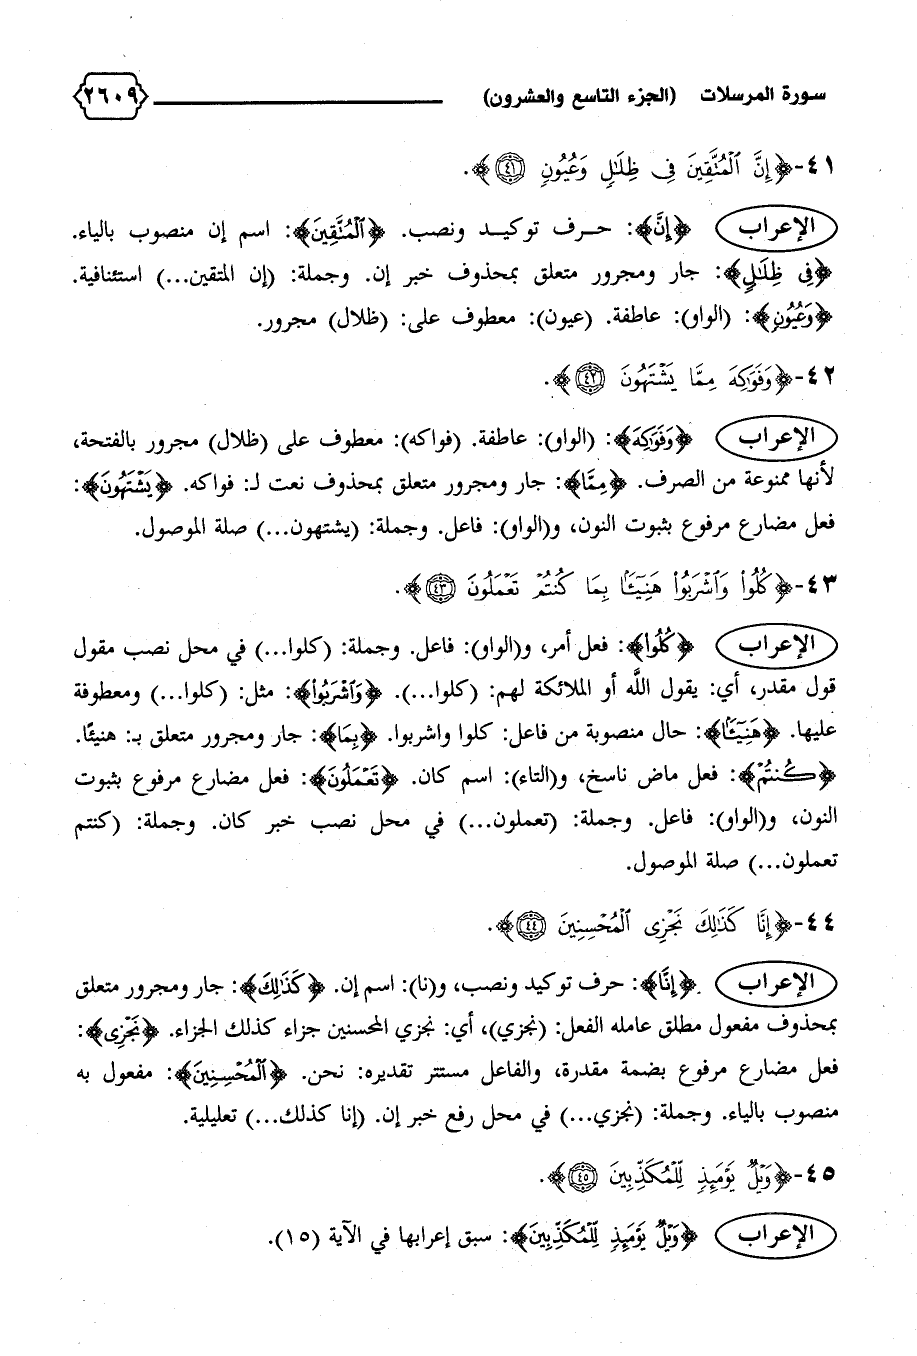 سورة المرسلات (الجزء التاسع والعشرون) ٢٦٠٩
٤١-﴿إِنَّ ٱلْمُتَّقِينَ فِى ظِلَـٰلٍ وَعُيُونٍ ٤١﴾.
الإعراب ﴿إِنَّ﴾: حرف توكيد ونصب. ﴿ٱلْمُتَّقِينَ﴾: اسم إن منصوب بالياء.
﴿فِى ظِلَـٰلٍ﴾: جار ومجرور متعلق بمحذوف خبر إن. وجملة: (إن المتقين...) استئنافية.
﴿وَعُيُونٍ﴾: (الواو): عاطفة. (عيون): معطوف على: (ظلال) مجرور.
٤٢-﴿وَفَوَٰكِهَ مِمَّا يَشْتَهُونَ ٤٢﴾.
الإعراب ﴿وَفَوَٰكِهَ﴾: (الواو): عاطفة. (فواكه): معطوف على (ظلال) مجرور بالفتحة،
لأنها ممنوعة من الصرف. ﴿مِمَّا﴾: جار ومجرور متعلق بمحذوف نعت لـ: فواكه. ﴿يَشْتَهُونَ﴾:
فعل مضارع مرفوع بثبوت النون، و(الواو): فاعل. وجملة: (يشتهون...) صلة الموصول.
٤٣-﴿كُلُوا۟ وَٱشْرَبُوا۟ هَنِيٓـًٔۢا بِمَا كُنتُمْ تَعْمَلُونَ ٤٣﴾.
الإعراب ﴿كُلُوا۟﴾: فعل أمر، و(الواو): فاعل. وجملة: (كلوا...) في محل نصب مقول
قول مقدر، أي: يقول الله أو الملائكة لهم: (كلوا...). ﴿وَٱشْرَبُوا۟﴾: مثل: (كلوا...) ومعطوفة
عليها. ﴿هَنِيٓـًٔۢا﴾: حال منصوبة من فاعل: كلوا واشربوا. ﴿بِمَا﴾: جار ومجرور متعلق بـ: هنيئًا.
﴿كُنتُمْ﴾: فعل ماض ناسخ، و(التاء): اسم كان. ﴿تَعْمَلُونَ﴾: فعل مضارع مرفوع بثبوت
النون، و(الواو): فاعل. وجملة: (تعملون...) في محل نصب خبر كان. وجملة: (كنتم
تعملون...) صلة الموصول.
٤٤-﴿إِنَّا كَذَٰلِكَ نَجْزِى ٱلْمُحْسِنِينَ ٤٤﴾.
الإعراب ﴿إِنَّا﴾: حرف توكيد ونصب، و(نا): اسم إن. ﴿كَذَٰلِكَ﴾: جار ومجرور متعلق
بمحذوف مفعول مطلق عامله الفعل: (نجزي)، أي: نجزي المحسنين جزاء كذلك الجزاء. ﴿نَجْزِى﴾:
فعل مضارع مرفوع بضمة مقدرة، والفاعل مستتر تقديره: نحن. ﴿ٱلْمُحْسِنِينَ﴾: مفعول به
منصوب بالياء. وجملة: (نجزي...) في محل رفع خبر إن. (إنا كذلك...) تعليلية.
٤٥-﴿وَيْلٌ يَوْمَئِذٍ لِّلْمُكَذِّبِينَ ٤٥﴾.
الإعراب ﴿وَيْلٌ يَوْمَئِذٍ لِّلْمُكَذِّبِينَ﴾: سبق إعرابها في الآية (١٥).